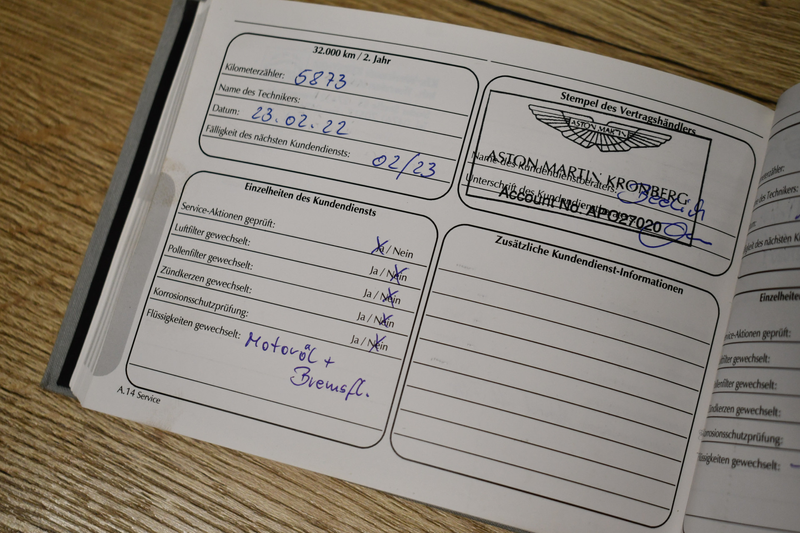 32.000 km / 2. Jahr
Kilometerzähler: 5873
Name des Technikers:
Datum: 23.02.22
Fälligkeit des nächsten Kundendiensts: 02/23
Stempel des Vertragshändlers
ASTON MARTIN
ASTON MARTIN KRONBERG
Name des Kundendienstberaters:
Unterschrift des Kundendienstberaters:
Account No. AP0927020
Einzelheiten des Kundendiensts
Service-Aktionen geprüft: Ja / Nein
Luftfilter gewechselt: Ja / Nein
Pollenfilter gewechselt: Ja / Nein
Zündkerzen gewechselt: Ja / Nein
Korrosionsschutzprüfung: Ja / Nein
Flüssigkeiten gewechselt: Motoröl +
Bremsfl.
Zusätzliche Kundendienst-Informationen
A.14 Service
Kilometerzähler:
des Technikers:
Datum:
des nächsten Kunden
Einzelheiten
-Aktionen geprüft:
gewechselt:
gewechselt:
gewechselt:
Korrosionsschutzprüfung:
gewechselt: